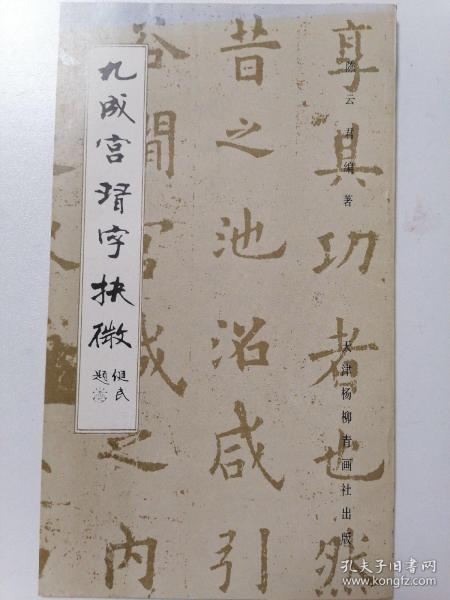 九成宫習字抉微
民
题
陈云君编著
天津杨柳青画社出版
享具功者也然
昔之池沼咸引
谷澗宮城之内
孔夫子旧书网
www.kongfz.com